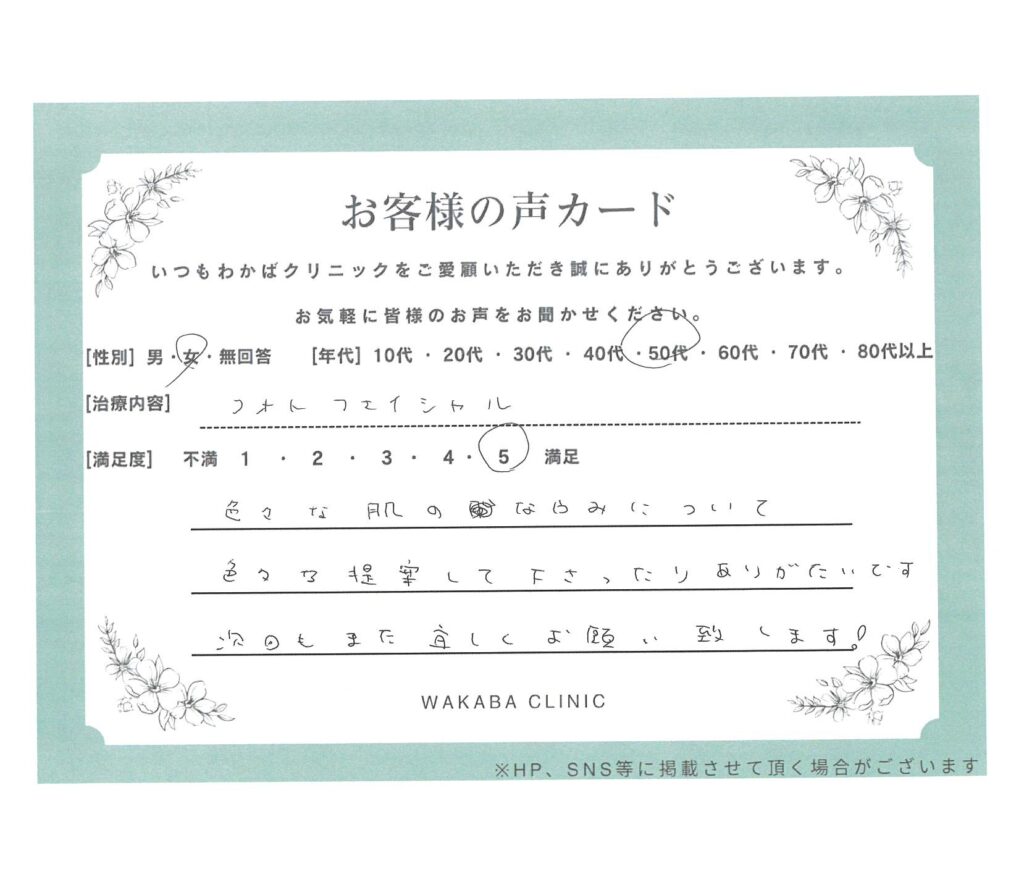 お客様の声カード
いつもわかばクリニックをご愛顧いただき誠にありがとうございます。
お気軽に皆様のお声をお聞かせください。
[性別] 男・女・無回答 [年代] 10代・20代・30代・40代・50代・60代・70代・80代以上
[治療内容] フォトフェイシャル
[満足度] 不満 1・2・3・4・5 満足
色々な肌のなやみについて
色々な提案して下さったりありがたいです
次回もまた宜しくお願い致します!
WAKABA CLINIC
※HP、SNS等に掲載させて頂く場合がございます